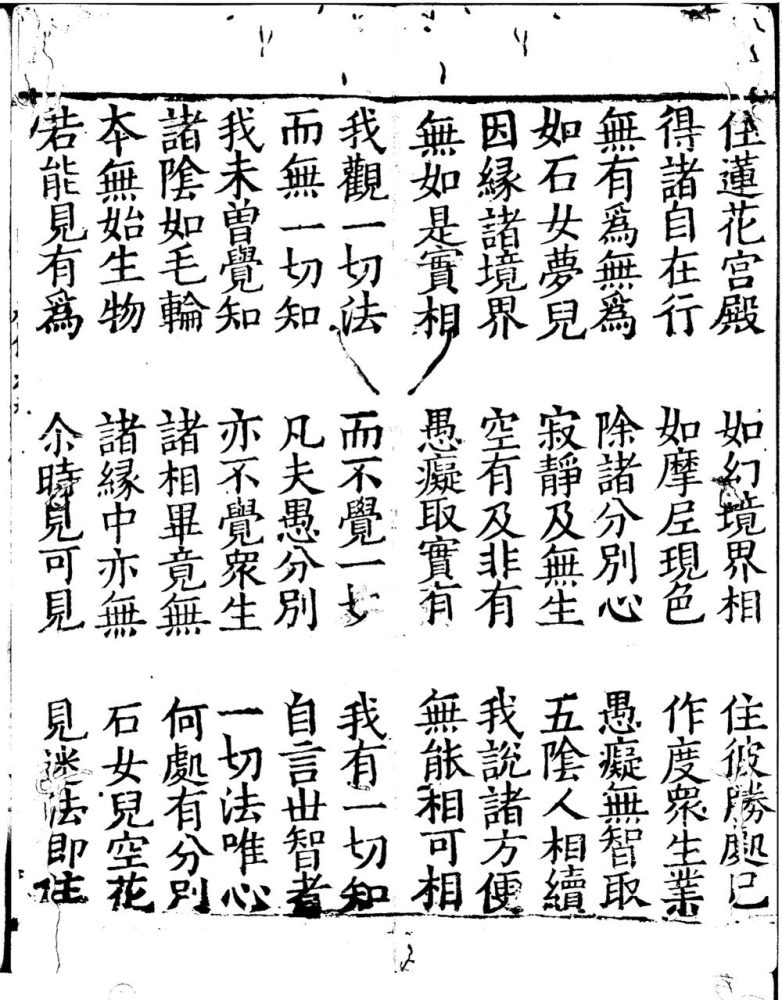 住蓮花宫殿 如幻境界相 住彼勝處已
得諸自在行 如摩尼現色 作度衆生業
無有爲無爲 除諸分別心 愚癡無智取
如石女夢兒 寂靜及無生 五陰人相續
因縁諸境界 空有及非有 我說諸方便
無如是實相 愚癡取實有 無能相可相
我觀一切法 而不覺一切 我有一切知
而無一切知 凡夫愚分別 自言世智者
我未曽覺知 亦不覺衆生 一切法唯心
諸陰如毛輪 諸相畢竟無 何處有分別
本無始生物 諸縁中亦無 石女兒空花
若能見有爲 尒時見可見 見迷法即住